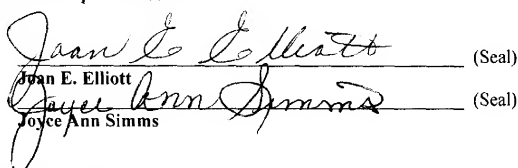 Joan E Elliott (Seal)
Joan E. Elliott
Joyce Ann Simms (Seal)
Joyce Ann Simms